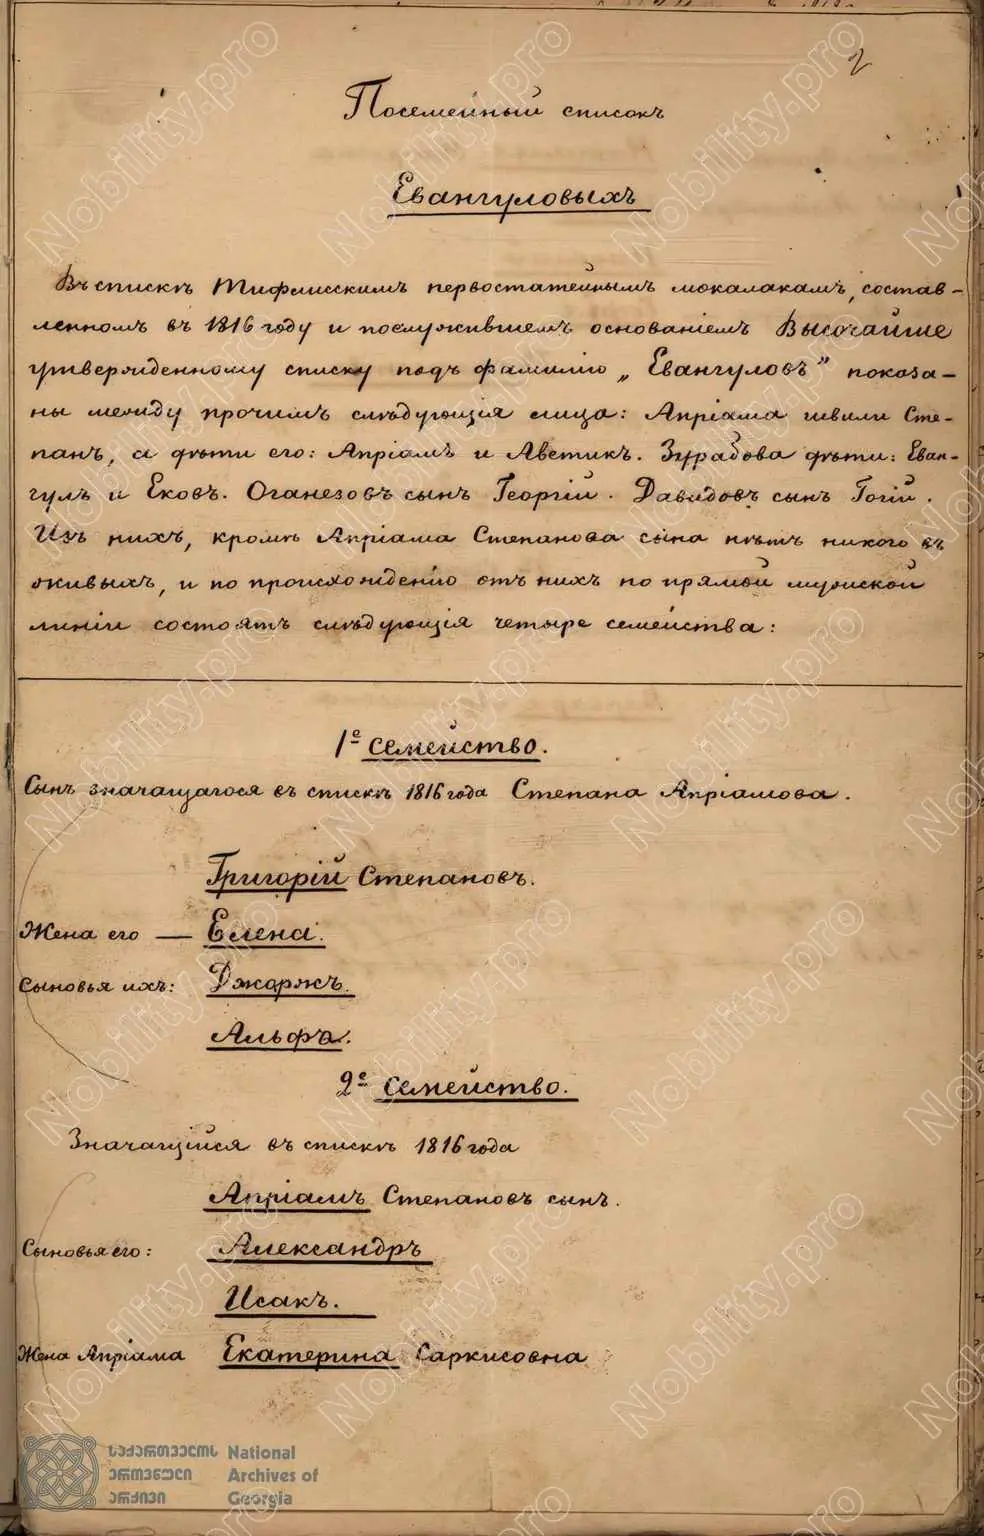 2
Посемейный списокъ
Евангуловыхъ
Въ списке Тифлисскимъ первостатейнымъ мокалакамъ, состав-
ленномъ въ 1816 году и послужившемъ основаніемъ Высочайше
утвержденному списку подъ фамиліею „Евангуловъ" показа-
ны между прочимъ слѣдующія лица: Апріама швили Сте-
панъ, а дѣти его: Апріамъ и Аветикъ. Зурабова дѣти: Еван-
гулъ и Ековъ. Оганезовъ сынъ Георгій. Давидовъ сынъ Гогій.
Изъ нихъ, кромѣ Апріама Степанова сына нѣтъ никого въ
живыхъ, и по происхожденію отъ нихъ по прямой мужской
линіи состоятъ слѣдующія четыре семейства:
1е семейство.
Сынъ значащагося въ спискѣ 1816 года Степана Апріамова.
Григорій Степановъ.
Жена его — Елена.
Сыновья ихъ: Джоржъ.
Альфъ.
2е семейство.
Значащійся въ спискѣ 1816 года
Апріамъ Степановъ сынъ.
Сыновья его: Александръ
Исакъ.
Жена Апріама Екатерина Саркисовна
საქართველოს National
ეროვნული Archives of
არქივი Georgia
Nobility.pro